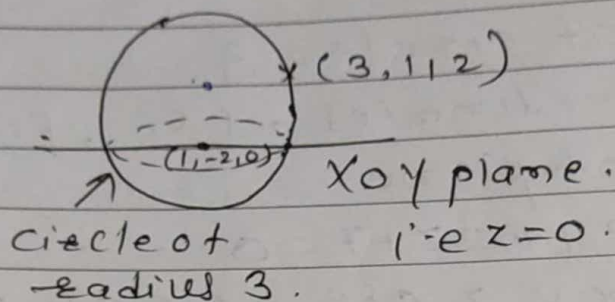 (3,1,2)
(1,-2,0)
XOY plane.
i.e z=0.
circle of
radius 3.